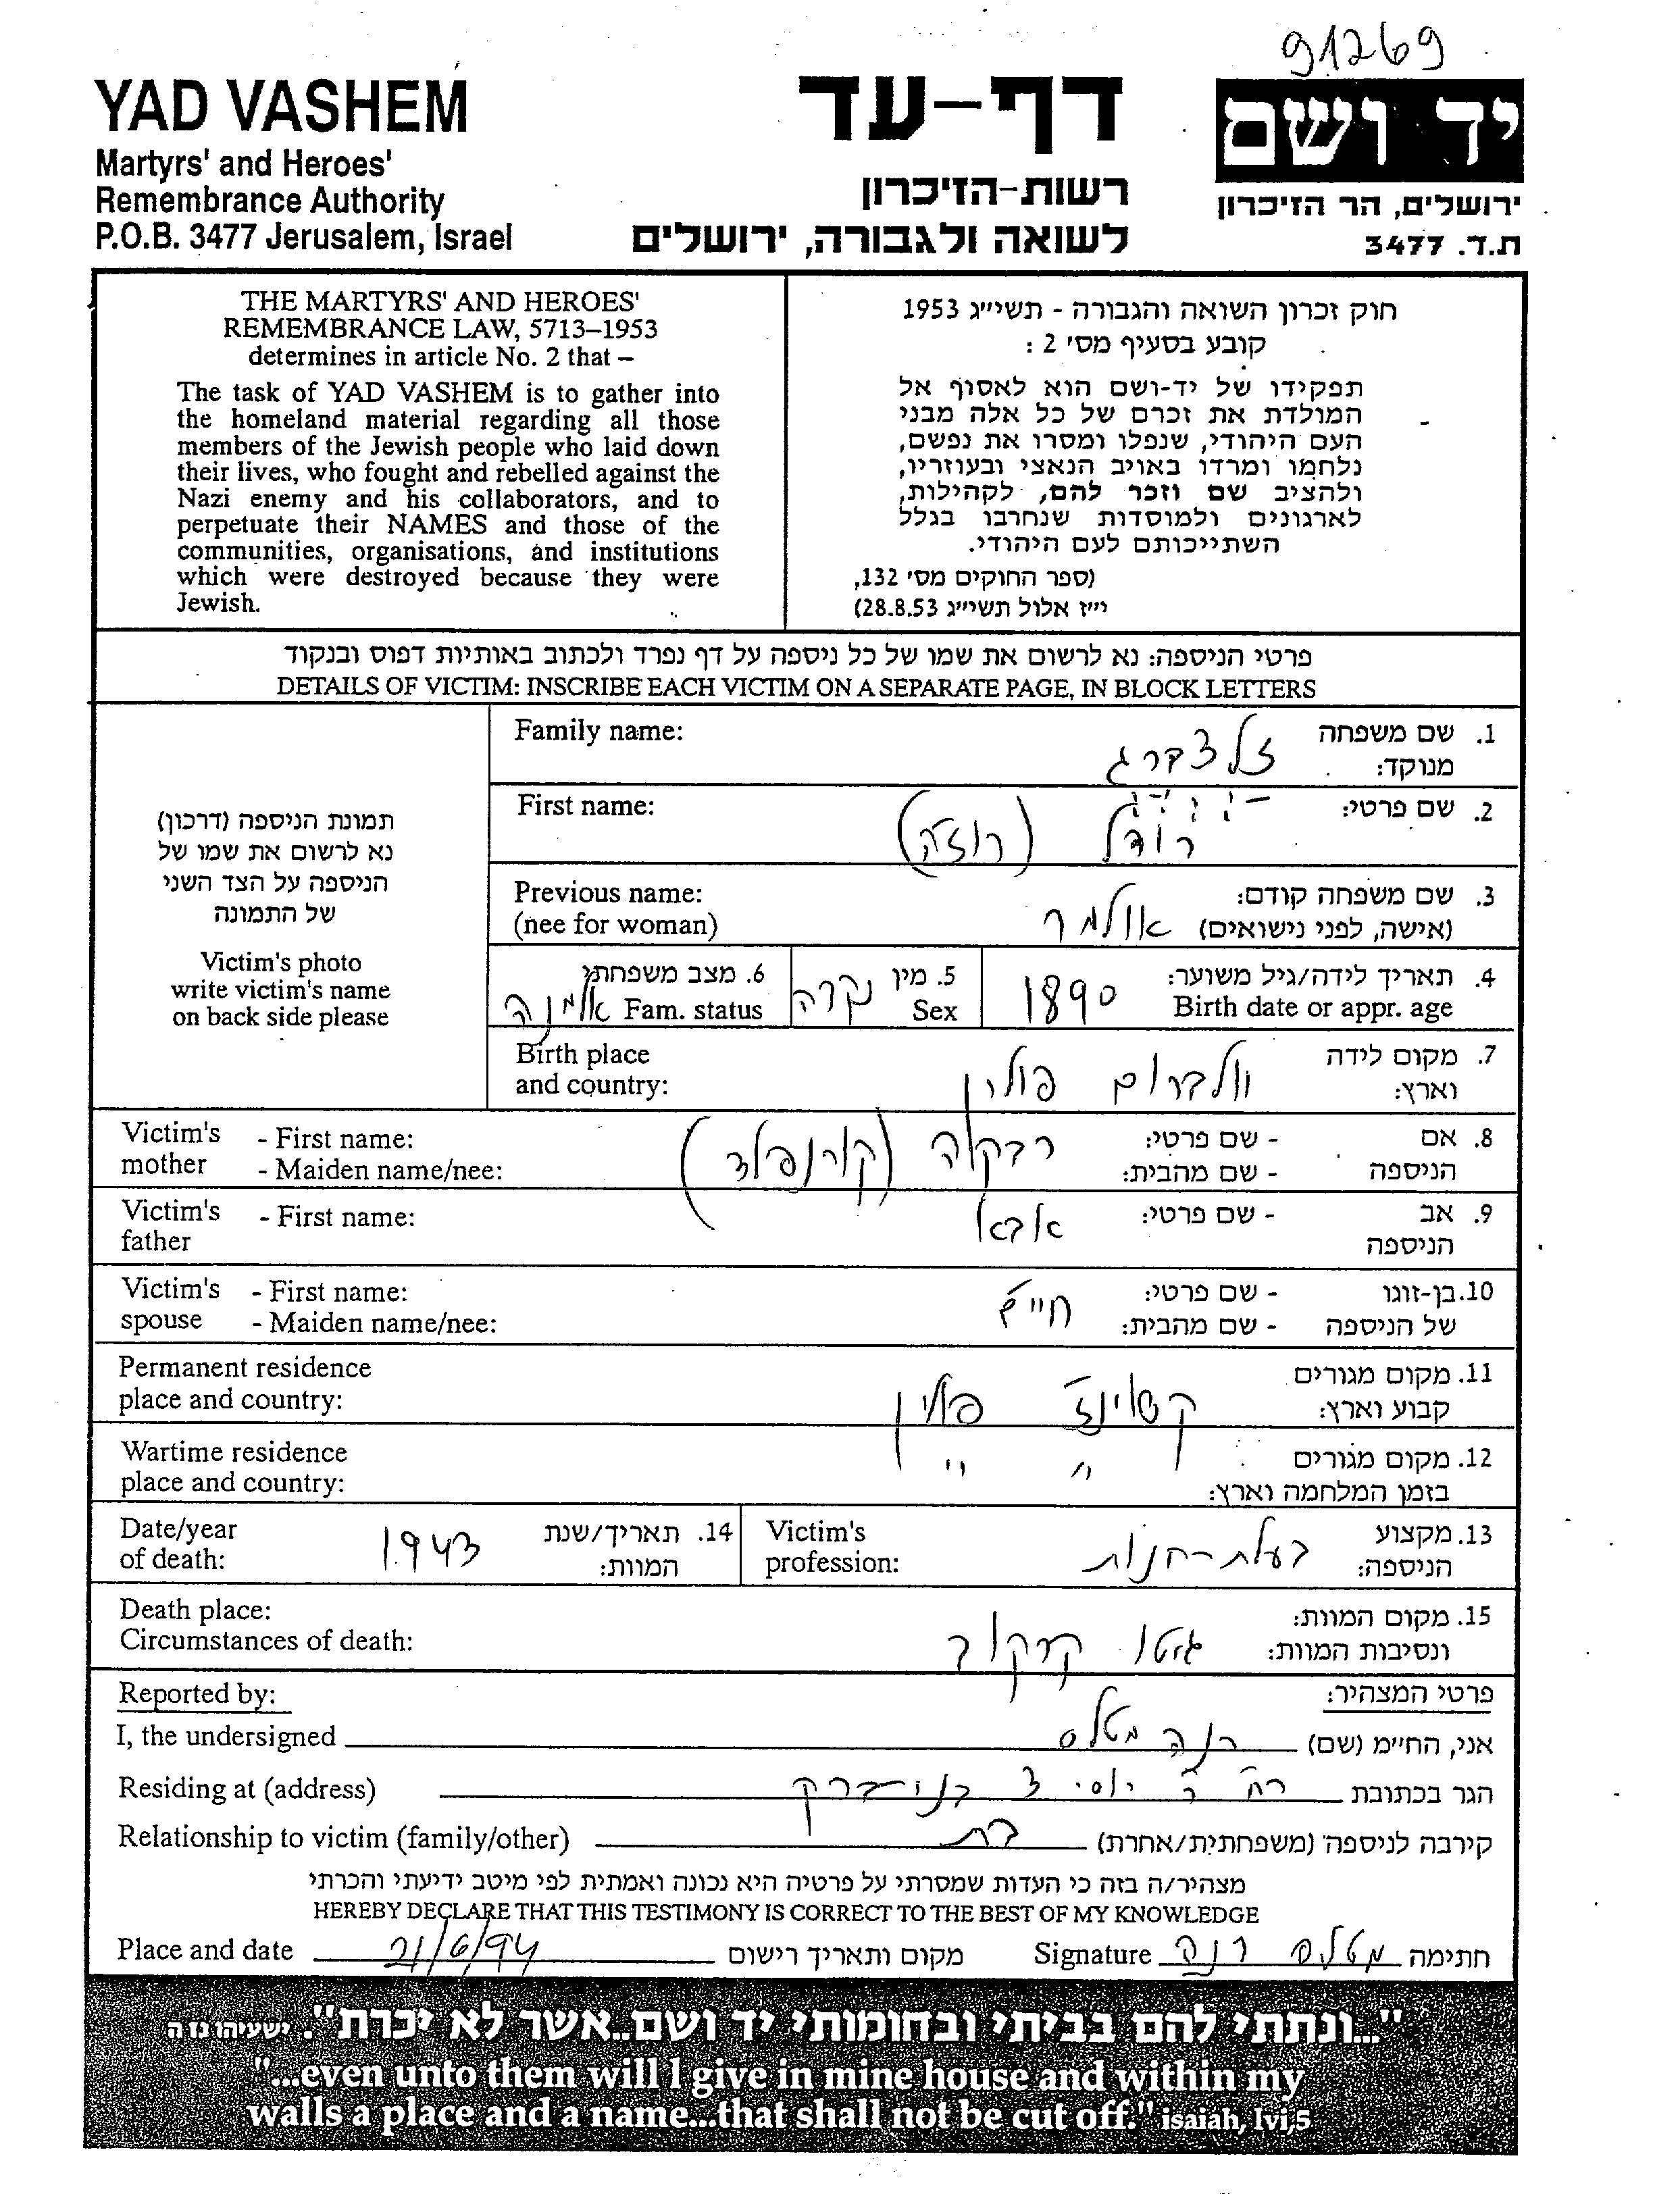 91269
YAD VASHEM
Martyrs' and Heroes'
Remembrance Authority
P.O.B. 3477 Jerusalem, Israel
דף-עד
רשות-הזיכרון
לשואה ולגבורה, ירושלים
יד ושם
ירושלים, הר הזיכרון
ת.ד. 3477
THE MARTYRS' AND HEROES'
REMEMBRANCE LAW, 5713–1953
determines in article No. 2 that –
The task of YAD VASHEM is to gather into
the homeland material regarding all those
members of the Jewish people who laid down
their lives, who fought and rebelled against the
Nazi enemy and his collaborators, and to
perpetuate their NAMES and those of the
communities, organisations, and institutions
which were destroyed because they were
Jewish.
חוק זכרון השואה והגבורה - תשי״ג 1953
קובע בסעיף מס׳ 2 :
תפקידו של יד-ושם הוא לאסוף אל
המולדת את זכרם של כל אלה מבני
העם היהודי, שנפלו ומסרו את נפשם,
נלחמו ומרדו באויב הנאצי ובעוזריו,
ולהציב שם וזכר להם, לקהילות,
לארגונים ולמוסדות שנחרבו בגלל
השתייכותם לעם היהודי.
(ספר החוקים מס׳ 132,
י״ז אלול תשי״ג 28.8.53)
פרטי הניספה: נא לרשום את שמו של כל ניספה על דף נפרד ולכתוב באותיות דפוס ובנקוד
DETAILS OF VICTIM: INSCRIBE EACH VICTIM ON A SEPARATE PAGE, IN BLOCK LETTERS
תמונת הניספה (דרכון)
נא לרשום את שמו של
הניספה על הצד השני
של התמונה
Victim's photo
write victim's name
on back side please
Family name: זלצברג 1. שם משפחה
מנוקד:
First name: רודל (רוזה) 2. שם פרטי:
Previous name: 3. שם משפחה קודם:
(nee for woman) אולמר (אישה, לפני נישואים)
4. תאריך לידה/גיל משוער: 1890
Birth date or appr. age
5. מין נקבה
Sex
6. מצב משפחתי אלמנה
Fam. status
Birth place 7. מקום לידה
and country: וולברום פולין וארץ:
Victim's - First name: רבקה - שם פרטי: 8. אם
mother - Maiden name/nee: - שם מהבית: הניספה
Victim's - First name: אבא - שם פרטי: 9. אב
father הניספה
Victim's - First name: חיים - שם פרטי: 10. בן-זוגו
spouse - Maiden name/nee: - שם מהבית: של הניספה
Permanent residence 11. מקום מגורים
place and country: פולין קבוע וארץ:
Wartime residence 12. מקום מגורים
place and country: " " בזמן המלחמה וארץ:
Date/year 1943 14. תאריך/שנת
of death: המוות:
Victim's 13. מקצוע
profession: בעלת-חנות הניספה:
Death place: 15. מקום המוות:
Circumstances of death: גיטו קרקוב ונסיבות המוות:
Reported by: פרטי המצהיר:
I, the undersigned רנה מטלס אני, החיימ (שם)
Residing at (address) רח' ר' יוסי 3 בני-ברק הגר בכתובת
Relationship to victim (family/other) בת קירבה לניספה (משפחתית/אחרת)
מצהיר/ה בזה כי העדות שמסרתי על פרטיה היא נכונה ואמתית לפי מיטב ידיעתי והכרתי
HEREBY DECLARE THAT THIS TESTIMONY IS CORRECT TO THE BEST OF MY KNOWLEDGE
Place and date 21/6/94 מקום ותאריך רישום Signature מטלס רנה חתימה
"...ונתתי להם בביתי ובחומותי יד ושם..אשר לא יכרת". ישעיהו נו ה
"...even unto them will I give in mine house and within my
walls a place and a name...that shall not be cut off." isaiah, lvi,5